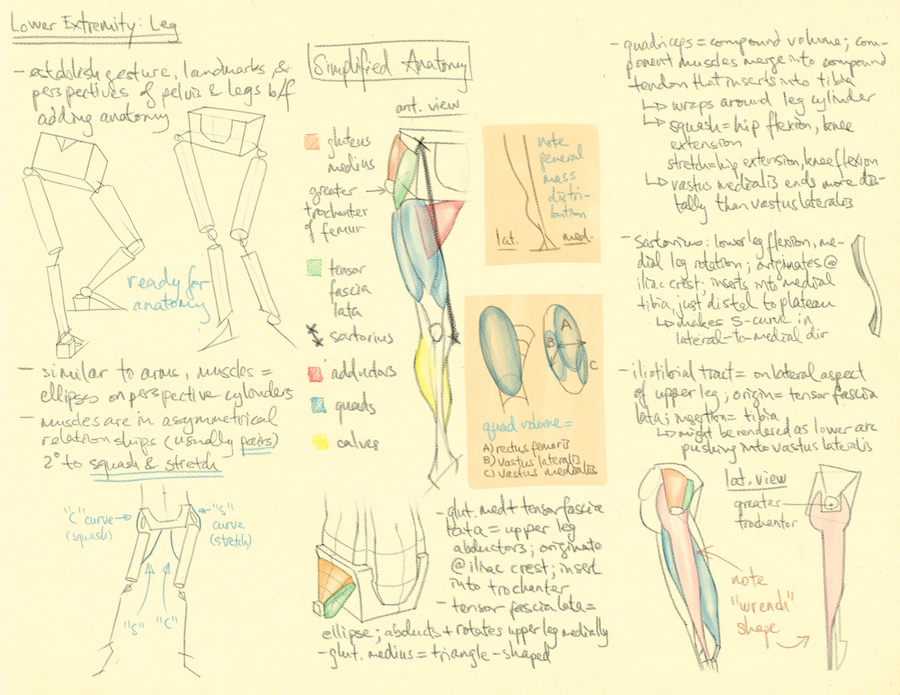 Lower Extremity: Leg
- establish gesture, landmarks, &
perspectives of pelvis & legs b/f
adding anatomy
ready for
anatomy
- similar to arms, muscles =
ellipses on perspective cylinders
- muscles are in asymmetrical
relationships (usually pairs)
2° to squash & stretch
"C" curve
(squash)
"S"
curve
(stretch)
"S"
"C"
Simplified Anatomy
ant. view
gluteus
medius
greater
trochanter
of femur
tensor
fascia
lata
sartorius
adductors
quads
calves
note
general
mass
distri-
bution
lat.
med.
A
B
C
quad volume =
A) rectus femoris
B) vastus lateralis
C) vastus medialis
- glut. med + tensor fascia
lata = upper leg
abductors; originate
@ iliac crest; insert
into trochanter
- tensor fascia lata =
ellipse; abducts + rotates upper leg medially
- glut. medius = triangle-shaped
- quadriceps = compound volume; com-
ponent muscles merge into compound
tendon that inserts into tibia
↳ wraps around leg cylinder
↳ squash = hip flexion, knee
extension
stretch = hip extension, knee flexion
↳ vastus medialis ends more dis-
tally than vastus lateralis
- Sartorius: lower leg flexion, me-
dial leg rotation; originates @
iliac crest; inserts into medial
tibia, just distal to plateau
↳ makes S-curve in
lateral-to-medial dir
- iliotibial tract = on lateral aspect
of upper leg; origin = tensor fascia
lata; insertion = tibia
↳ might be rendered as lower arc
pushing into vastus lateralis
lat. view
greater
trochantor
note
"wrench"
shape